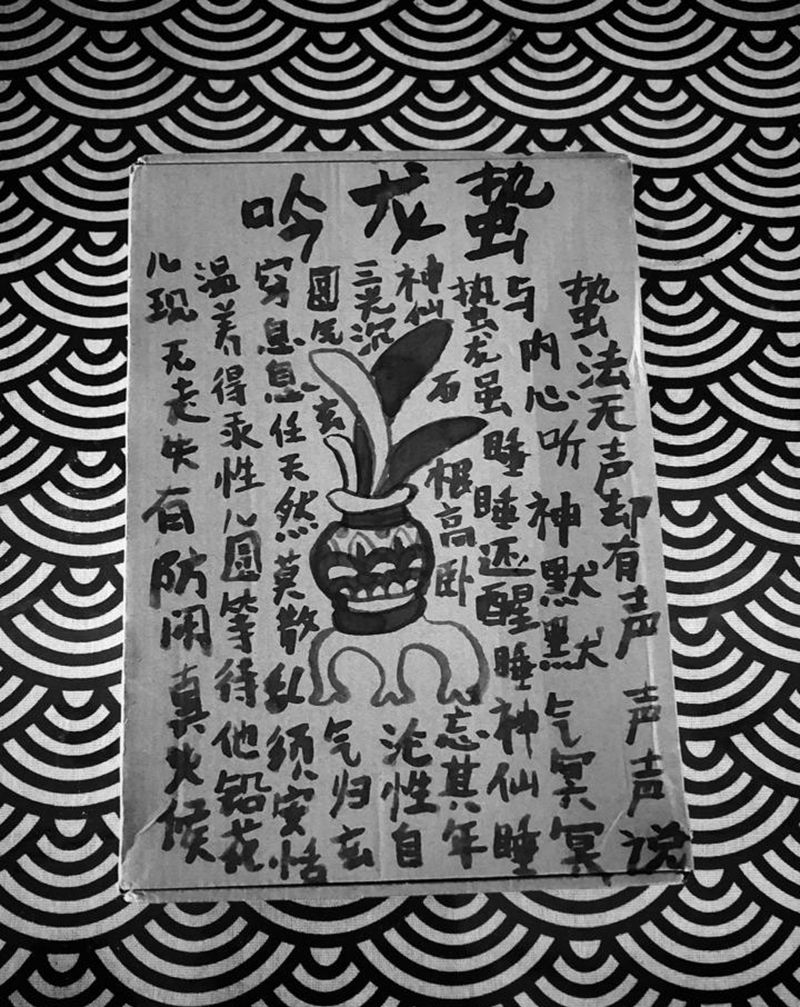 蛰龙吟
蛰法无声却有声声声说
与内心听神默默气冥冥
蛰龙虽睡睡还醒睡神仙睡
神仙石根高卧忘其年
三光沉沦性自
圆气玄气归玄
穿息息任天然莫散乱须安恬
温养得汞性儿圆等待他铅花
儿现无走失有防闲真火候